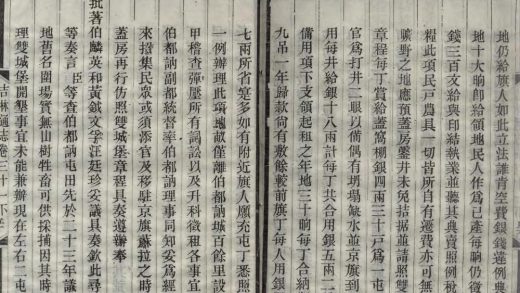 地仍給旗人如此立法誰肯空費銀錢違例典
地十大晌卽給領地民人作爲己產每晌仍徵
錢三百文給與印結執業並聽其典賣照例稅
糧此項民戸農具一切皆所自有遷費亦可無
曠野之地應預蓋房鑿井未免拮据並請照雙
章程每丁賞給蓋窩棚銀四兩三十戸爲一屯
官爲打井二眼以備偶有坍塌缺水並京旗到
用每井給銀十八兩計每丁共合用銀五兩二
備用項下支領起租之年地三十晌每丁合納
九吊一年歸款尚有敷餘較前旗丁每人用銀
七兩所省寔多如有附近旗人願充屯丁悉照
一例辦理此項地畝僅離伯都訥城百餘里設
甲稽查彈壓所有詞訟以及升科徵租各事宜
伯都訥副都統督率伯都訥理事同知妥爲經
來招集民衆或須添官及移駐京旗蘇拉之時
蓋房再行仿照雙城堡章程具奏遵辦奉
批著伯麟英和黃鉞文孚汪廷珍妥議具奏欽此尋
等奏言臣等查伯都訥屯田先於二十三年議
地舊名圍場實無山樹牲畜可供採捕因其時
理雙城堡開墾事宜未能兼辦現在左右二屯
吉林通志卷三十一下